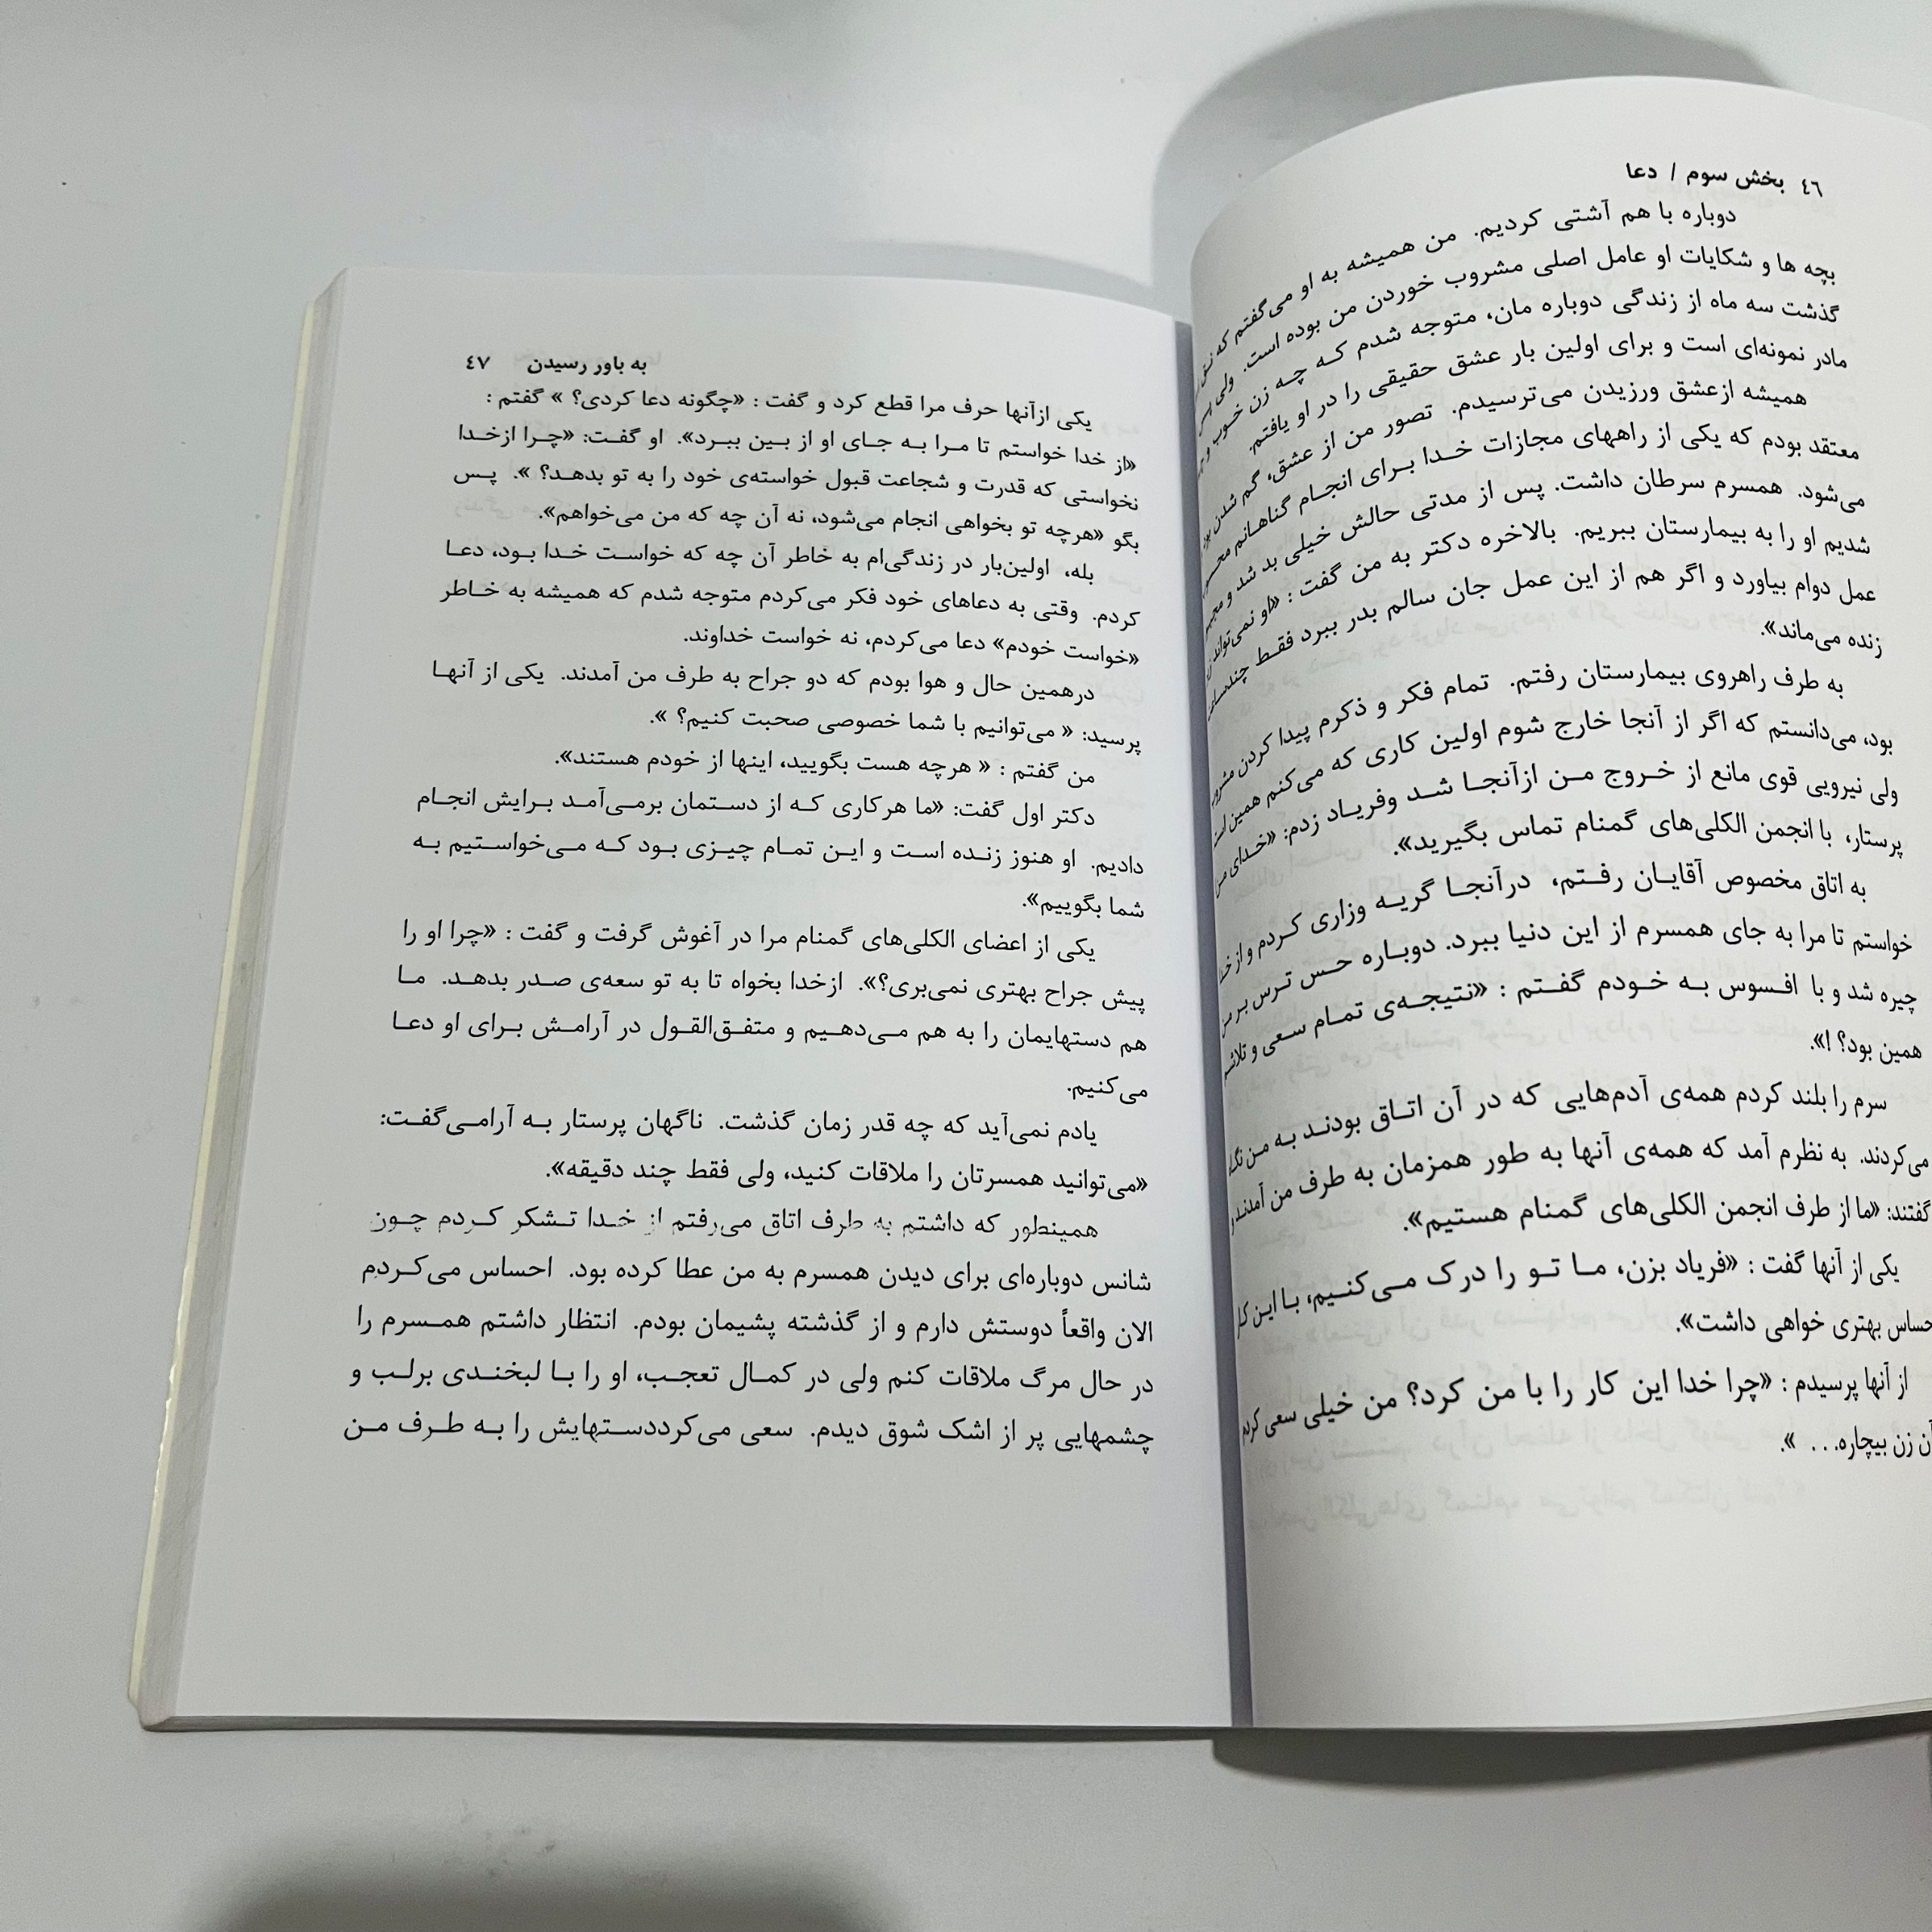 ٤٦ بخش سوم / دعا
دوباره با هم آشتی کردیم. من همیشه به او می‌گفتم که
بچه ها و شکایات او عامل اصلی مشروب خوردن من بوده است. ولی پس
گذشت سه ماه از زندگی دوباره مان، متوجه شدم کـه چـه زن خـوب و
مادر نمونه‌ای است و برای اولین بار عشق حقیقی را در او یافتم.
همیشه ازعشق ورزیدن می‌ترسیدم. تصور من از عشق، گم شدن بود
معتقد بودم که یکی از راههای مجازات خـدا بـرای انجـام گناهـانم
می‌شود. همسرم سرطان داشت. پس از مدتی حالش خیلی بد شد و
شدیم او را به بیمارستان ببریم. بالاخره دکتر به من گفت : «او نمی‌تواند
عمل دوام بیاورد و اگر هم از این عمل جان سالم بدر ببرد فقـط
زنده می‌ماند».
به طرف راهروی بیمارستان رفتم. تمام فکر و ذکرم پیدا کردن
بود، می‌دانستم که اگر از آنجا خارج شوم اولین کاری که می‌کنم همین
ولی نیرویی قوی مانع از خـروج مـن ازآنجـا شـد وفریـاد زدم: «خـدای
پرستار، با انجمن الکلی‌های گمنام تماس بگیرید».
به اتاق مخصوص آقایـان رفـتم، درآنجـا گریـه وزاری کـردم و از
خواستم تا مرا به جای همسرم از این دنیا ببرد. دوبـاره حـس تـرس بـر
چیره شد و با افـسوس بـه خـودم گفـتم : «نتیجـه‌ی تمـام سعی و
همین بود؟ !».
سرم را بلند کردم همه‌ی آدم‌هایی که در آن اتـاق بودنـد بـه مـن
می‌کردند. به نظرم آمد که همه‌ی آنها به طور همزمان به طرف من آمدنـد
گفتند: «ما از طرف انجمن الکلی‌های گمنام هستیم».
یکی از آنها گفت : «فریاد بزن، مـا تـو را درک مـی‌کنـیم، بـا ایـن
بهتری خواهی داشت».
از آنها پرسیدم : «چرا خدا این کار را با من کرد؟ من خیلی سعی
زن بیچاره... ».
به باور رسیدن ٤٧
یکی ازآنها حرف مرا قطع کرد و گفت : «چگونه دعا کردی؟ » گفتم :
«از خدا خواستم تا مـرا بـه جـای او از بـین ببـرد». او گفـت: «چـرا ازخـدا
نخواستی که قدرت و شجاعت قبول خواسته‌ی خود را به تو بدهـد؟ ». پـس
بگو «هرچه تو بخواهی انجام می‌شود، نه آن چه که من می‌خواهم».
بله، اولین‌بار در زندگی‌ام به خاطر آن چه که خواست خـدا بـود، دعـا
کردم. وقتی به دعاهای خود فکر می‌کردم متوجه شدم که همیشه به خـاطر
«خواست خودم» دعا می‌کردم، نه خواست خداوند.
درهمین حال و هوا بودم که دو جراح به طرف من آمدند. یکی از آنهـا
پرسید: « می‌توانیم با شما خصوصی صحبت کنیم؟ ».
من گفتم : « هرچه هست بگویید، اینها از خودم هستند».
دکتر اول گفت: «ما هرکاری کـه از دسـتمان برمـی‌آمـد بـرایش انجـام
دادیم. او هنوز زنـده اسـت و ایـن تمـام چیـزی بـود کـه مـی‌خواسـتیم بـه
شما بگوییم».
یکی از اعضای الکلی‌های گمنام مرا در آغوش گرفت و گفت : «چرا او را
پیش جراح بهتری نمی‌بری؟». ازخدا بخواه تا به تو سعه‌ی صـدر بدهـد. مـا
هم دستهایمان را به هم مـی‌دهـیم و متفـق‌القـول در آرامـش بـرای او دعـا
می‌کنیم.
یادم نمی‌آید که چه قدر زمان گذشت. ناگهان پرستار بـه آرامـی‌گفـت:
«می‌توانید همسرتان را ملاقات کنید، ولی فقط چند دقیقه».
همینطور که داشتم به طرف اتاق می‌رفتم از خـدا تـشکر کـردم چـون
شانس دوباره‌ای برای دیدن همسرم به من عطا کرده بود. احساس می‌کـردم
الان واقعاً دوستش دارم و از گذشته پشیمان بودم. انتظار داشتم همـسرم را
در حال مرگ ملاقات کنم ولی در کمـال تعجـب، او را بـا لبخنـدی برلـب و
چشمهایی پر از اشک شوق دیدم. سعی می‌کرددسـتهایش را بـه طـرف مـن